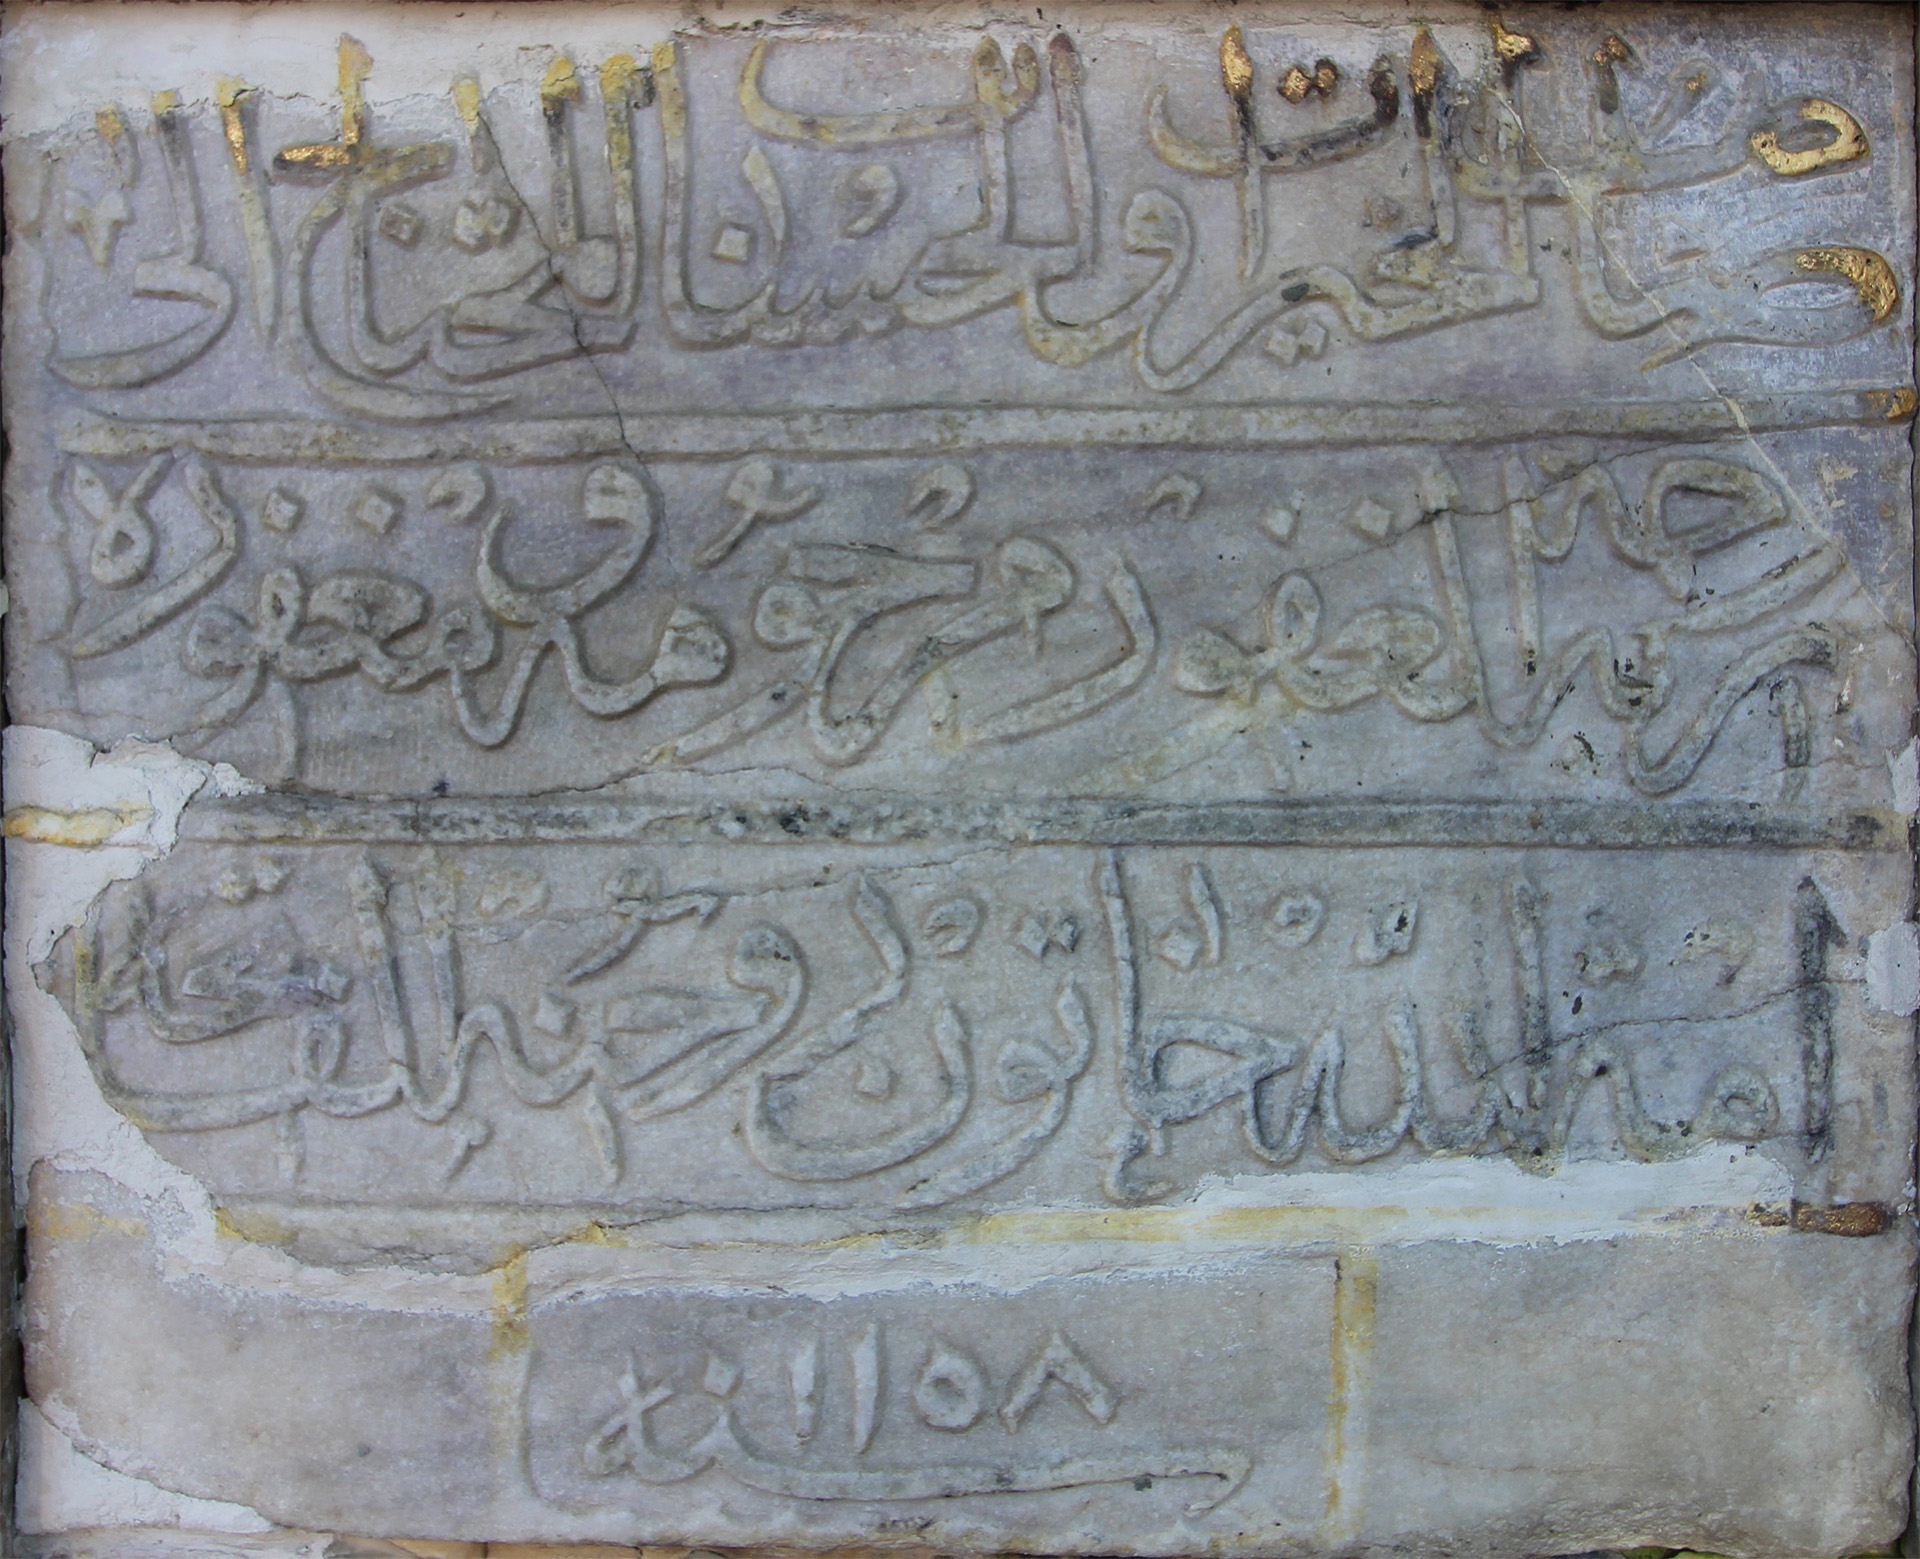 صاحبة الخيرات والحسنات المحتاج الى
رحمة ربه الغفور مرحومه و مغفوره
امة الله خاتون روحنه الفاتحه
سنه ١١٥٨